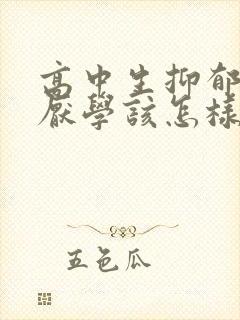 高中生抑郁
厭學該怎樣
五色瓜